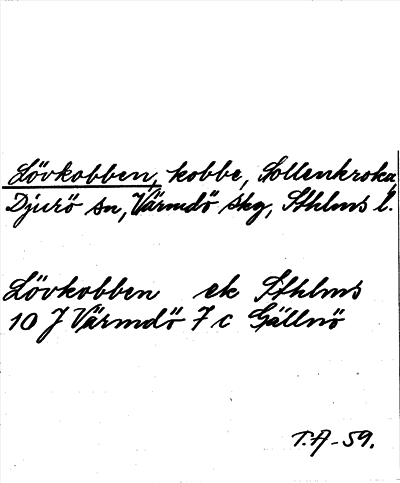 Lövkobben, kobbe, Sollenkroka,
Djurö sn, Värmdö skg, Sthlms l.
Lövkobben ek Sthlms
10 J Värmdö 7 c Gällnö
T.A-59.